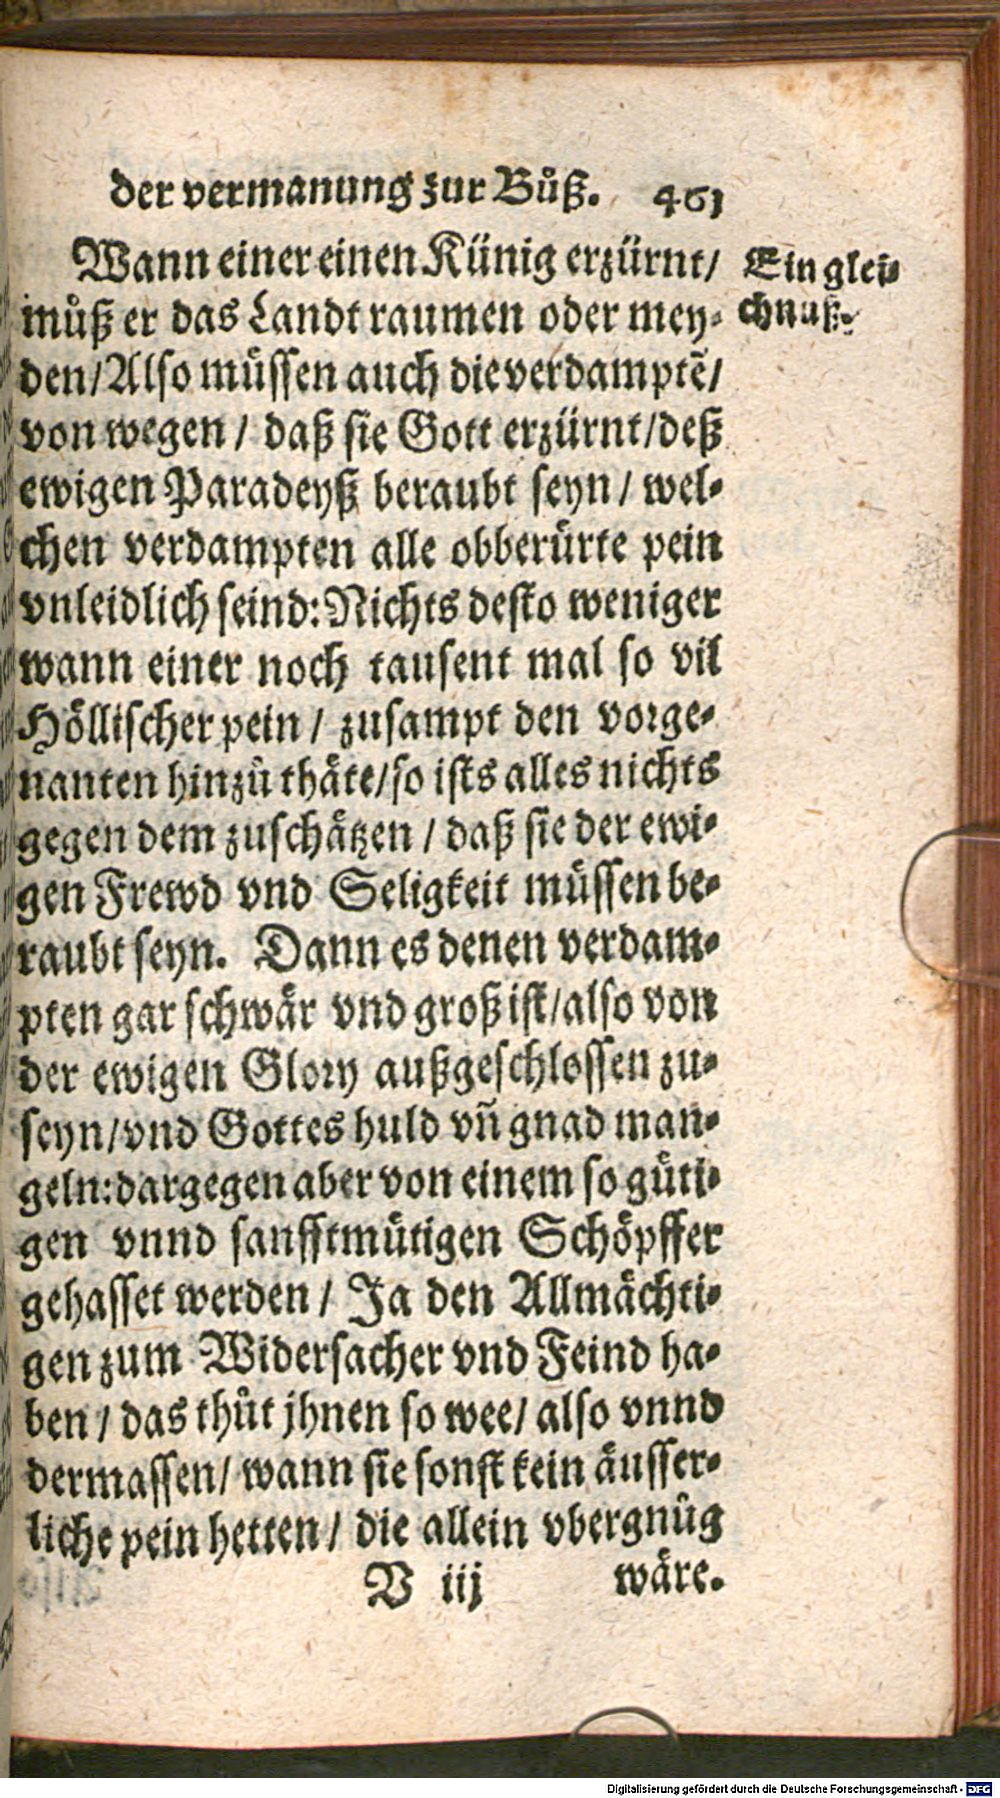 der vermanung zur Bůß. 461
Wann einer einen Künig erzürnt/
můß er das Landt raumen oder mey⸗
den/Also müssen auch die verdamptē/
von wegen/ daß sie Gott erzürnt/deß
ewigen Paradeyß beraubt seyn/ wel⸗
chen verdampten alle obberürte pein
vnleidlich seind: Nichts desto weniger
wann einer noch tausent mal so vil
Höllischer pein/ zusampt den vorge⸗
nanten hinzů thäte/so ists alles nichts
gegen dem zuschätzen/ daß sie der ewi⸗
gen Frewd vnd Seligkeit müssen be⸗
raubt seyn. Dann es denen verdam⸗
pten gar schwär vnd groß ist/also von
der ewigen Glory außgeschlossen zu⸗
seyn/vnd Gottes huld vn̄ gnad man⸗
geln: dargegen aber von einem so güti⸗
gen vnnd sanfftmütigen Schöpffer
gehasset werden/ Ja den Allmächti⸗
gen zum Widersacher vnd Feind ha⸗
ben/ das thůt jhnen so wee/ also vnnd
dermassen/ wann sie sonst kein äusser⸗
liche pein hetten/ die allein vbergnůg
V iij wäre.
Ein glei⸗
chnuß.
Digitalisierung gefördert durch die Deutsche Forschungsgemeinschaft - DFG